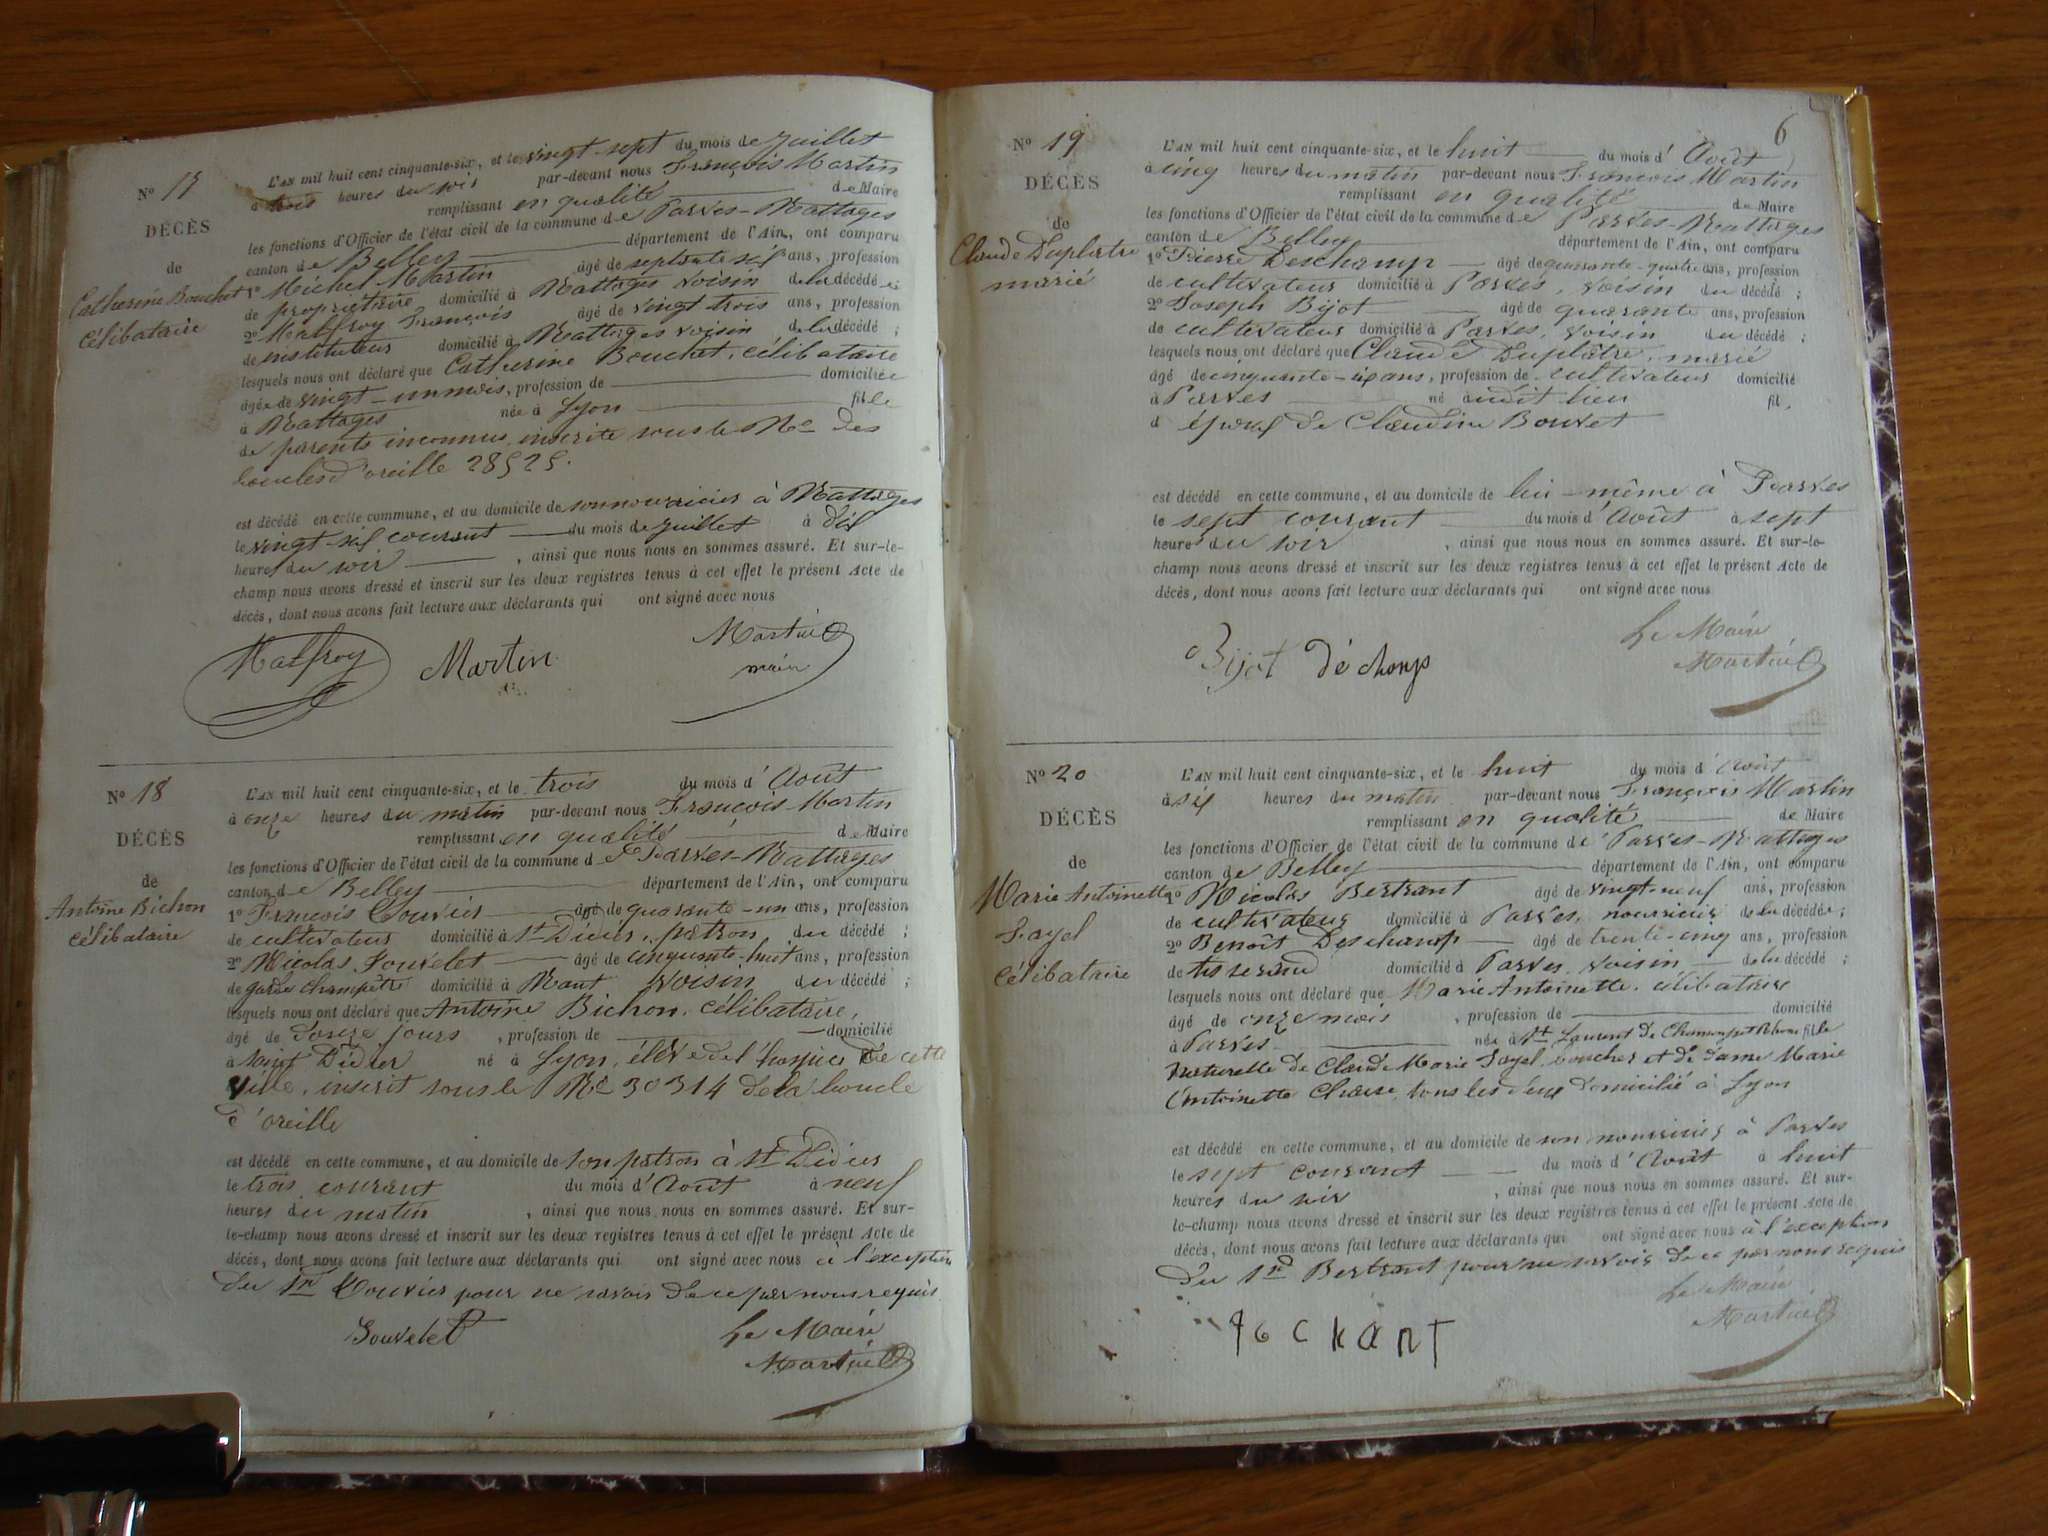 N° 17
DÉCÈS
de
Catherine Bouchet
célibataire
L'AN mil huit cent cinquante-six, et le vingt-sept du mois de Juillet
à trois heures du soir par-devant nous François Martin
remplissant en qualité de Maire
les fonctions d'Officier de l'état civil de la commune de Parves-Nattages
canton de Belley département de l'Ain, ont comparu
1° Michel Martin âgé de septante six ans, profession
de propriétaire domicilié à Nattages voisin de la décédée
2° Malfroy François âgé de vingt trois ans, profession
de instituteur domicilié à Nattages voisin de la décédé ;
lesquels nous ont déclaré que Catherine Bouchet, célibataire
âgée de vingt-un mois, profession de domiciliée
à Nattages née à Lyon fille
de parents inconnus inscrite sous le No des
boucles d'oreille 28525.
est décédé en cette commune, et au domicile de son nourricier à Nattages
le vingt-six courant du mois de Juillet à dix
heures du soir , ainsi que nous nous en sommes assuré. Et sur-le-
champ nous avons dressé et inscrit sur les deux registres tenus à cet effet le présent Acte de
décès, dont nous avons fait lecture aux déclarants qui ont signé avec nous
Malfroy Martin Martin
maire
N° 18
DÉCÈS
de
Antoine Bichon
célibataire
L'AN mil huit cent cinquante-six, et le trois du mois d'Août
à onze heures du matin par-devant nous François Martin
remplissant en qualité de Maire
les fonctions d'Officier de l'état civil de la commune de Parves-Nattages
canton de Belley département de l'Ain, ont comparu
1° François Couvier âgé de quarante-un ans, profession
de cultivateur domicilié à St Didier, patron du décédé ;
2° Nicolas Jouvelet âgé de cinquante-huit ans, profession
de garde champêtre domicilié à Nant voisin du décédé ;
lesquels nous ont déclaré que Antoine Bichon, célibataire,
âgé de douze jours , profession de domicilié
à Saint Didier né à Lyon, élève de l'hospice de cette
ville, inscrit sous le No 30314 de la boucle
d'oreille
est décédé en cette commune, et au domicile de son patron à St Didier
le trois courant du mois d'Août à neuf
heures du matin , ainsi que nous nous en sommes assuré. Et sur-
le-champ nous avons dressé et inscrit sur les deux registres tenus à cet effet le présent Acte de
décès, dont nous avons fait lecture aux déclarants qui ont signé avec nous à l'exception
du Sr Couvier pour ne savoir de ce par nous requis
Jouvelet Le Maire
Martin
6
N° 19
DÉCÈS
de
Claude Duplatre
marié
L'AN mil huit cent cinquante-six, et le huit du mois d'Août
à cinq heures du matin par-devant nous François Martin
remplissant en qualité de Maire
les fonctions d'Officier de l'état civil de la commune de Parves-Nattages
canton de Belley département de l'Ain, ont comparu
1° Pierre Deschamp âgé de quarante-quatre ans, profession
de cultivateur domicilié à Parves, voisin du décédé ;
2° Joseph Bijot âgé de quarante ans, profession
de cultivateur domicilié à Parves, voisin du décédé ;
lesquels nous ont déclaré que Claude Duplâtre, marié
âgé de cinquante-six ans, profession de cultivateur domicilié
à Parves né audit lieu fil
d époux de Claudine Bouvet
est décédé en cette commune, et au domicile de lui-même à Parves
le sept courant du mois d'Août à sept
heures du soir , ainsi que nous nous en sommes assuré. Et sur-le-
champ nous avons dressé et inscrit sur les deux registres tenus à cet effet le présent Acte de
décès, dont nous avons fait lecture aux déclarants qui ont signé avec nous
Le Maire
Bijot déchamp Martin
N° 20
DÉCÈS
de
Marie Antoinette
Fayel
célibataire
L'AN mil huit cent cinquante-six, et le huit du mois d'Août
à six heures du matin par-devant nous François Martin
remplissant en qualité de Maire
les fonctions d'Officier de l'état civil de la commune de Parves-Nattages
canton de Belley département de l'Ain, ont comparu
1° Nicolas Bertrant âgé de vingt-neuf ans, profession
de cultivateur domicilié à Parves, nourricier de la décédée ;
2° Benoît Deschamp âgé de trente-cinq ans, profession
de tisserand domicilié à Parves, voisin de la décédé ;
lesquels nous ont déclaré que Marie Antoinette, célibataire
âgé de onze mois , profession de domicilié
à Parves née à St Laurent de Chamousset Rhône fille
naturelle de Claude Marie Fayel, boucher et de dame Marie
Antoinette Chasse, tous les deux domicilié à Lyon
est décédé en cette commune, et au domicile de son nourricier à Parves
le sept courant du mois d'Août à huit
heures du soir , ainsi que nous nous en sommes assuré. Et sur-
le-champ nous avons dressé et inscrit sur les deux registres tenus à cet effet le présent Acte de
décès, dont nous avons fait lecture aux déclarants qui ont signé avec nous à l'exception
du Sr Bertrant pour ne savoir de ce par nous requis
Le Maire
Martin